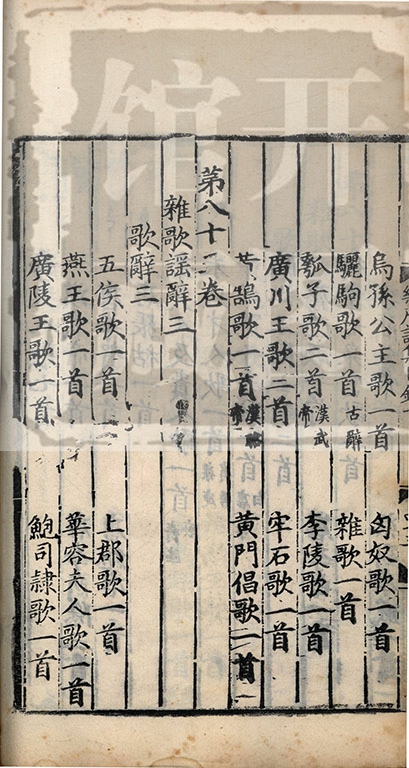 烏孫公主歌一首 匈奴歌一首
驪駒歌一首古辭 雜歌一首
瓠子歌二首漢武帝 李陵歌一首
廣川王歌二首 牢石歌一首
黃鵠歌一首漢昭帝 黃門倡歌一首
第八十五卷
雜歌謠辭三
歌辭三
五侯歌一首 上郡歌一首
燕王歌一首 華容夫人歌一首
廣陵王歌一首 鮑司隸歌一首
开
馆